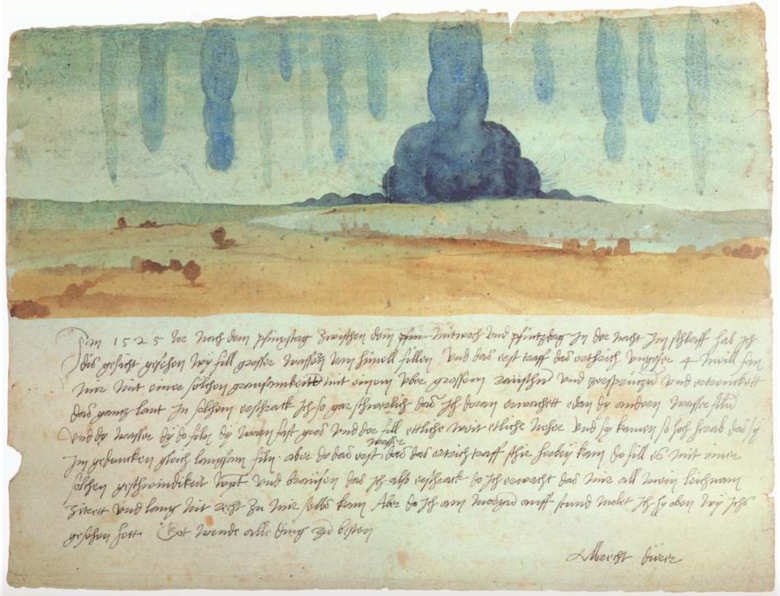 Im 1525 Jor nach dem pfinxstag zwischen dem Mitwoch und pfintzdag in der nacht im schlaff hab ich
dis gesicht gesehen wy fill grosser wassern vom himell fillen Und das erst traff das erthrich ungefer 4 meill fan
mir mit einer solchen grausamkeitt mit einem uber grossem raüschn und zersprützn und ertrenckett
das gannz lant In solchem erschrack ich so gar schwerlich das ich doran erwachett edan dy andern wasser filn
Und dy wasser dy do filn dy warn fast gros und der fill ettliche weit etliche neher und sy kamen so hoch herab das sy
im gedancken gleich langsam filn. aber do das erst wasser das das ertrich traff schir herbey kam do fill es mit einer
solchen geschwindikeit wynt und braüsen das ich also erschrack do ich erwacht das mir all mein leichnam
zitrett und lang nit recht zu mir selbs kam Aber do ich am morgen auff stund molet ich hy oben wy ichs
gesehen hett. Got wende alle ding zu besten
Albrecht dürer